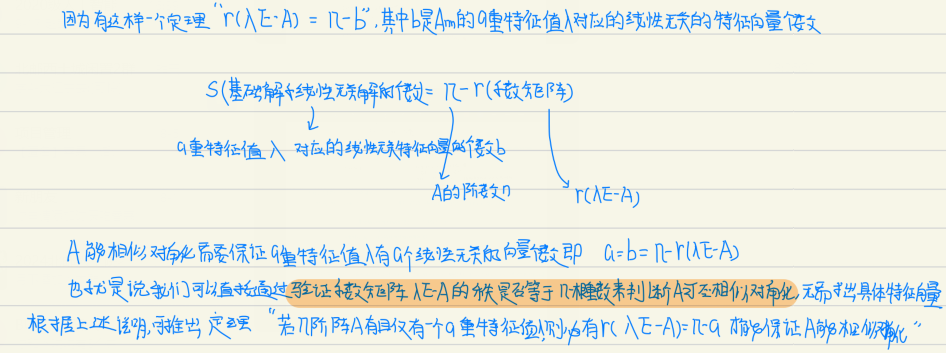 因为有这样一个定理“r(λE-A) = n-b”,其中b是Am的a重特征值λ对应的线性无关的特征向量个数
S(基础解系线性无关解的个数)= n-r(系数矩阵)
a重特征值 λ 对应的线性无关特征向量的个数b
A的阶数n
r(λE-A)
A能相似对角化需要保证a重特征值λ有a个线性无关的向量个数即 a=b=n-r(λE-A)
也就是说我们可以直接通过验证系数矩阵λE-A的秩是否等于n-重数来判断A可否相似对角化,无需求出具体特征向量
根据上述说明,可推出 定理 “若n阶阵A有且仅有一个a重特征值λ则必有r(λE-A)=n-a 才能保证A能相似对角化”